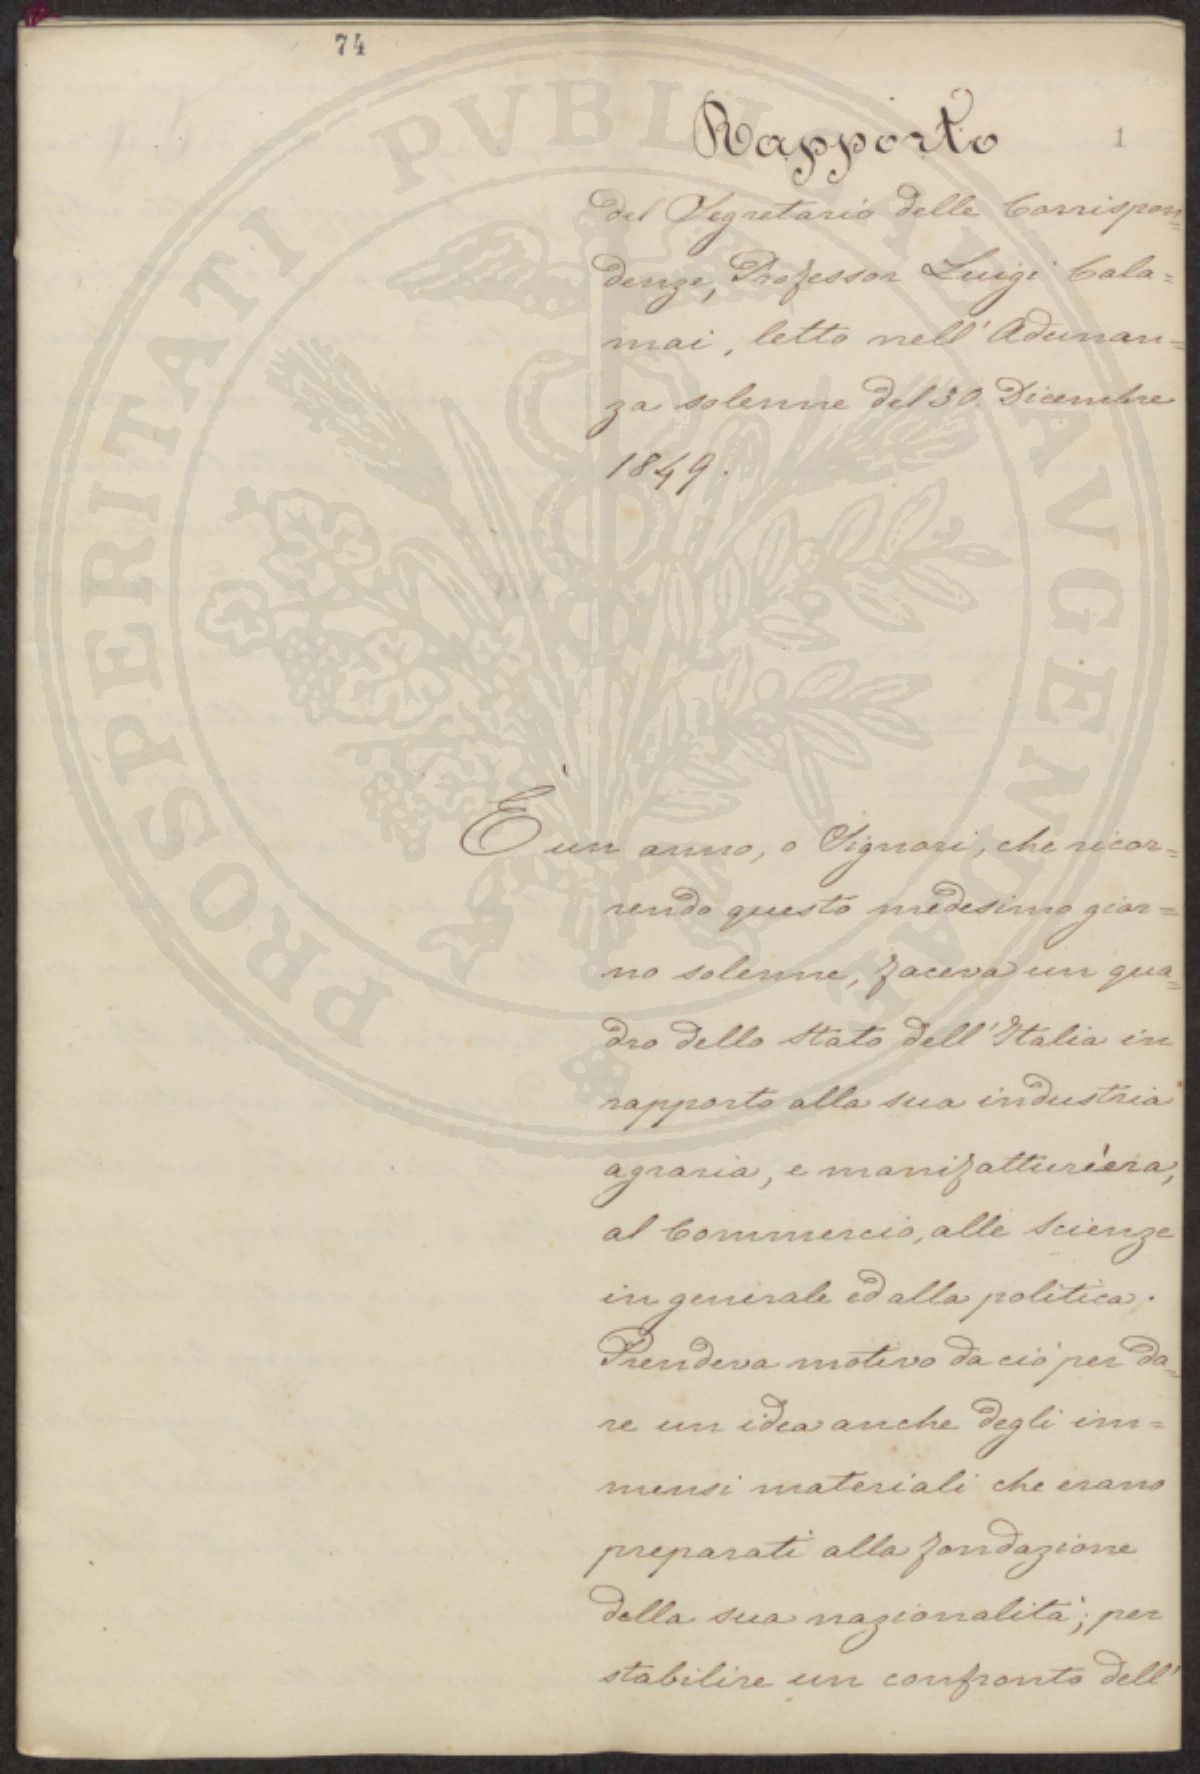 74
Rapporto
1
del Segretario delle Corrispon=
denze, Professor Luigi Cala=
mai, letto nell' Adunan=
za solenne del 30. Dicembre
1849.
È un anno, o Signori, che ricor=
rendo questo medesimo gior=
no solenne, faceva un qua=
dro dello stato dell' Italia in
rapporto alla sua industria
agraria, e manifatturiera,
al Commercio, alle scienze
in generale ed alla politica.
Prendeva motivo da ciò per da=
re un idea anche degli im=
mensi materiali che erano
preparati alla fondazione
della sua nazionalità; per
stabilire un confronto dell'
PROSPERITATI PVBLICAE AVGENDAE